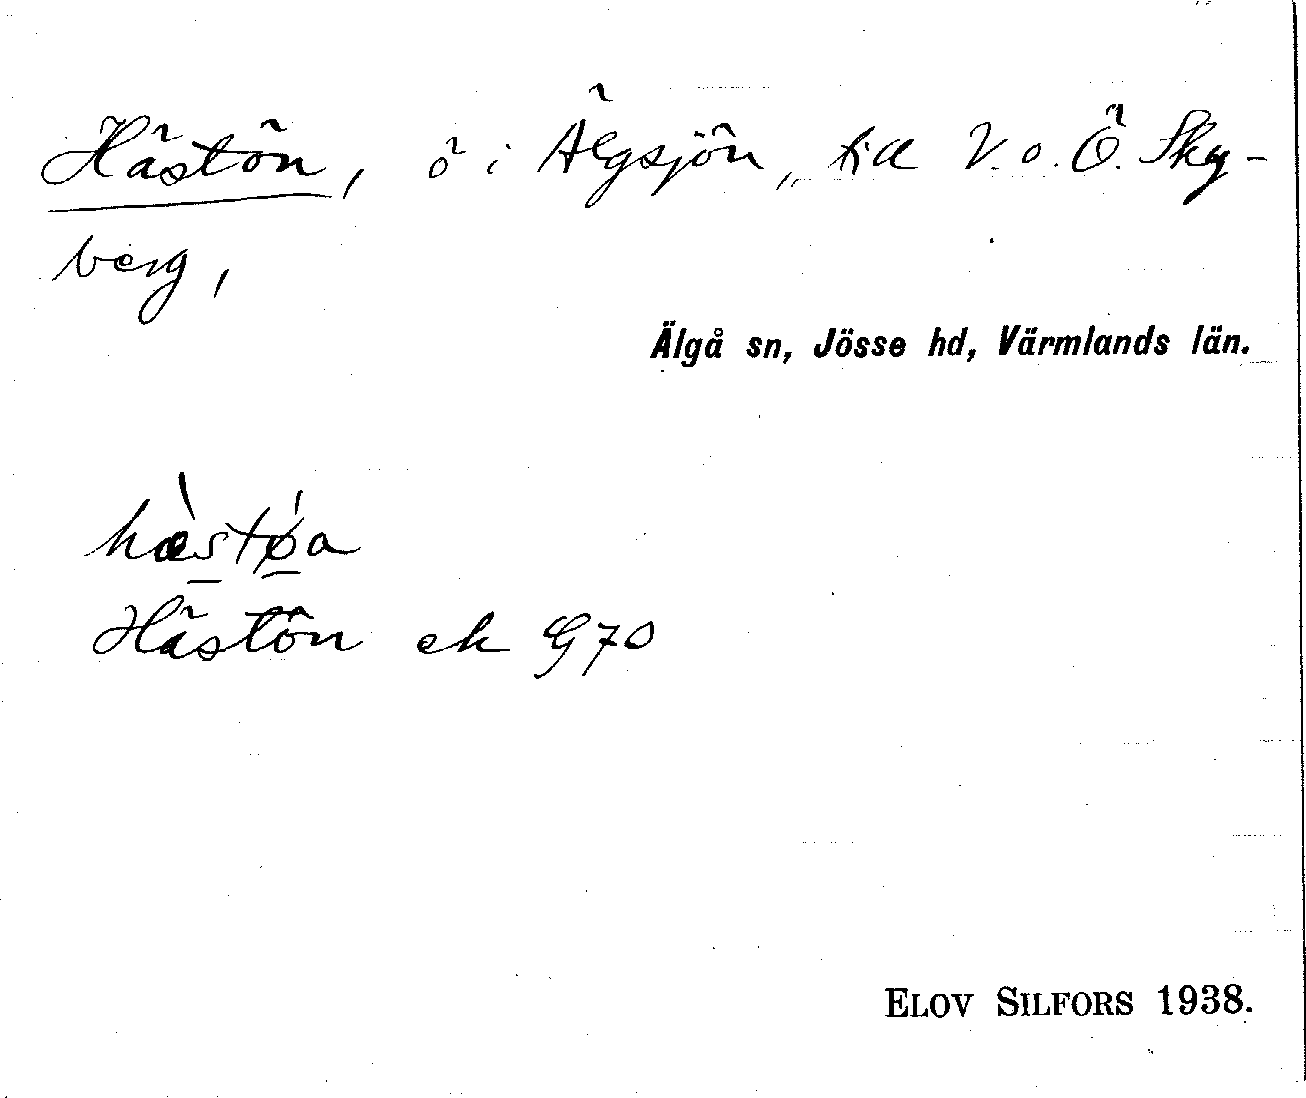 Hästön, ö i Älgsjön, till V. o. Ö. Sky-
berg,
Älgå sn, Jösse hd, Värmlands län.
hæ̀stø̀a
Hästön ek G70
ELOV SILFORS 1938.